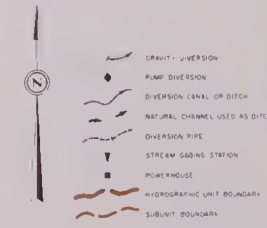 N
GRAVITY DIVERSION
PUMP DIVERSION
DIVERSION CANAL OR DITCH
NATURAL CHANNEL USED AS DITC
DIVERSION PIPE
STREAM GAGING STATION
POWERHOUSE
HYDROGRAPHIC UNIT BOUNDARY
SUBUNIT BOUNDARY